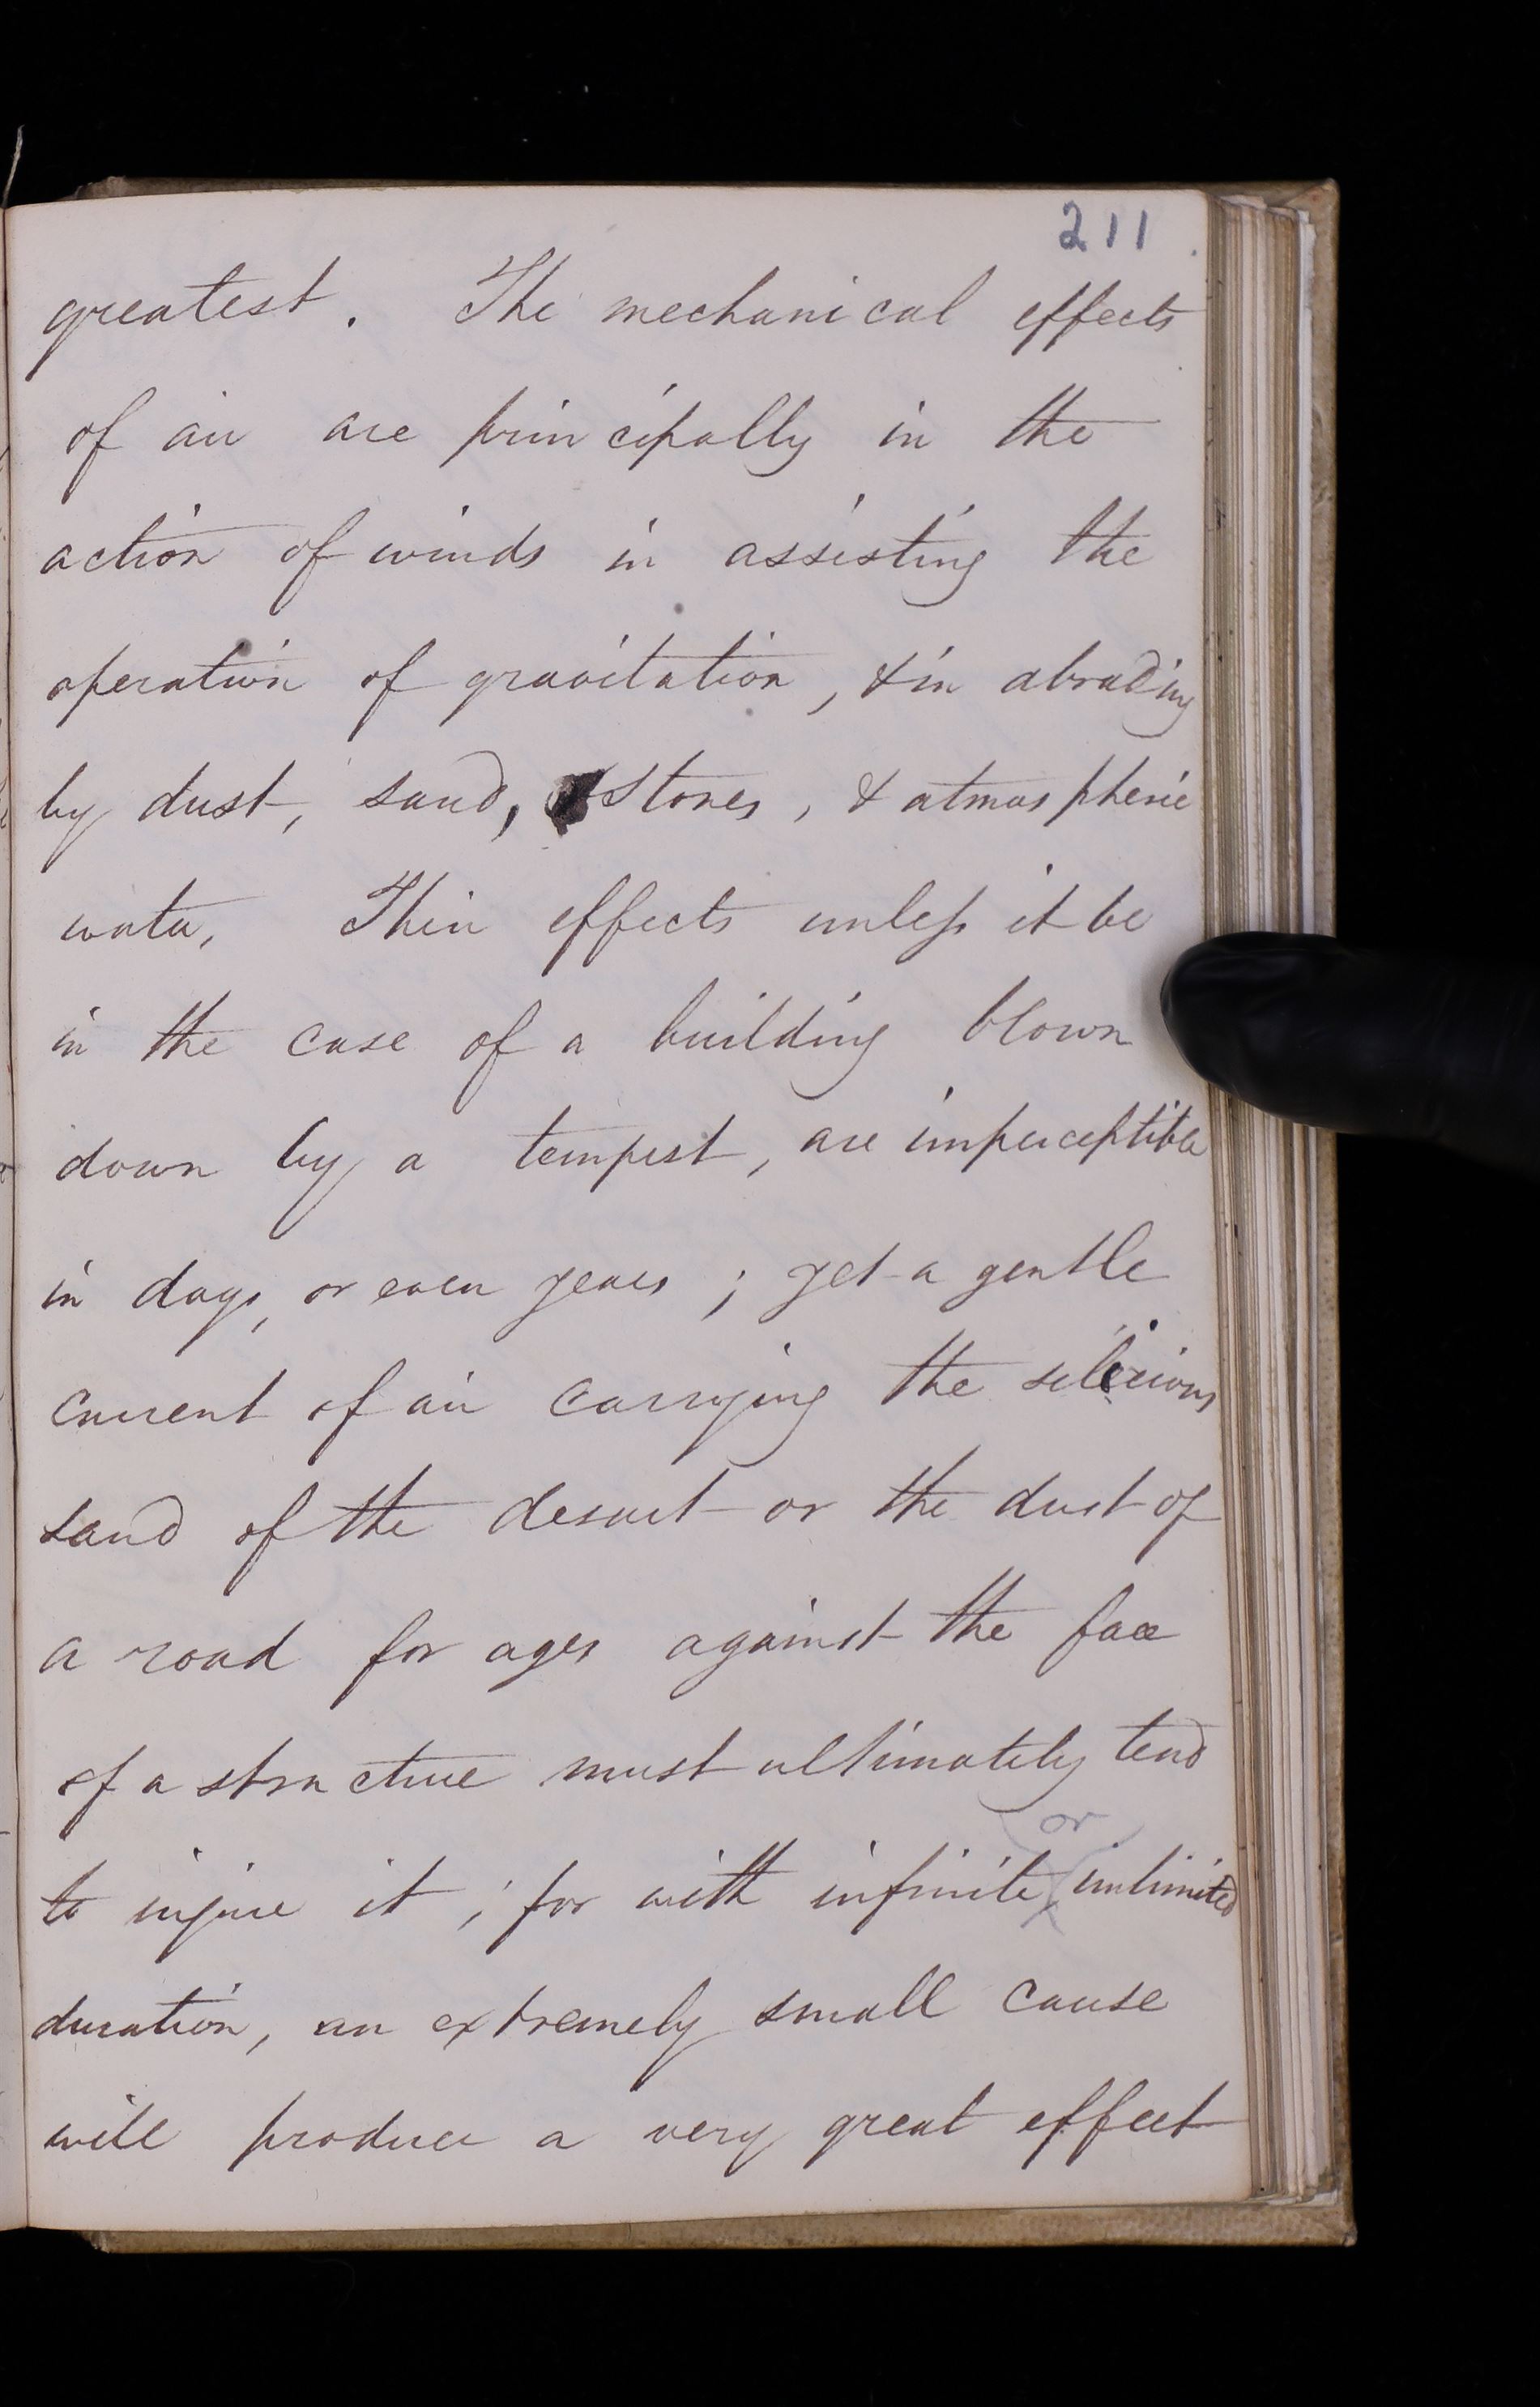 211
greatest. The mechanical effects
of air are principally in the
action of winds in assisting the
operation of gravitation, & in abrading
by dust, sand, stones, & atmospheric
water. Their effects unless it be
in the case of a building blown
down by a tempest, are imperceptible
in days, or even years; yet a gentle
current of air carrying the
sand of the desert or the dust of
a road for ages against the face
of a structure must ultimately tend
or
to injure it; for with infinite unlimited
duration, an extremely small cause
will produce a very great effect